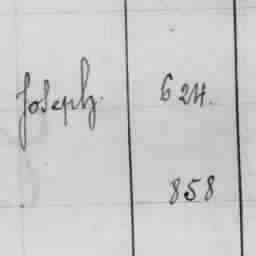 Joseph. 624.
858